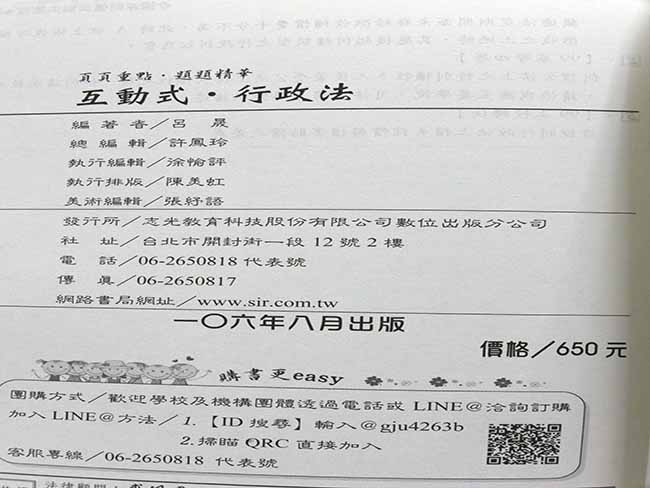 頁頁重點．題題精華
互動式．行政法
編著者／呂晟
總編輯／許鳳玲
執行編輯／徐愉評
執行排版／陳美虹
美術編輯／張紓語
發行所／志光教育科技股份有限公司數位出版分公司
社址／台北市開封街一段12號2樓
電話／06-2650818代表號
傳真／06-2650817
網路書局網址／www.sir.com.tw
一○六年八月出版
價格／650元
購書更easy
團購方式／歡迎學校及機構團體透過電話或LINE@洽詢訂購
加入LINE@方法／1.【ID搜尋】輸入@gju4263b
2.掃瞄QRC直接加入
客服專線／06-2650818 代表號
法律顧問